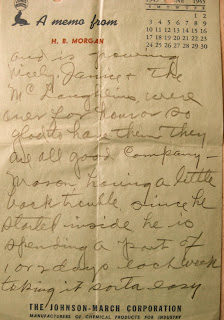 A memo from
H. B. MORGAN
1945 1945
S M T W T F S
1 2
3 4 5 6 7 8 9
10 11 12 13 14 15 16
17 18 19 20 21 22 23
24 25 26 27 28 29 30
and is growing
nicely Janice & the
McLaughlins were
over for honor so
glad to have them they
are all good Company -
Mason having a little
back trouble since he
started inside he is
spending a part of
1 or 2 days each week
taking it sorta easy
THE JOHNSON-MARCH CORPORATION
MANUFACTURERS OF CHEMICAL PRODUCTS FOR INDUSTRY